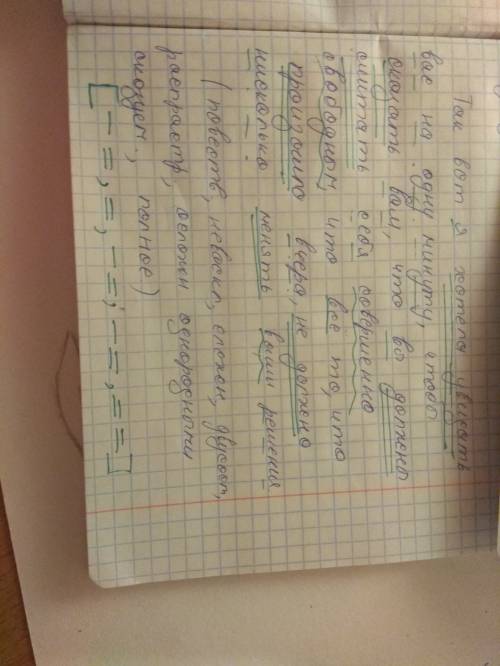 Так вот я хотела увидеть
вас на одну минуту, чтоб
сказать вам, что вы должны
считать себя совершенно
свободным, что все то, что
произошло вчера, не должно
нисколько менять ваши решения
(повеств, невоскл, сложн, двусост,
распростр, осложн однородными
сказуем., полное)
[— =, =, — =, — =, = =]